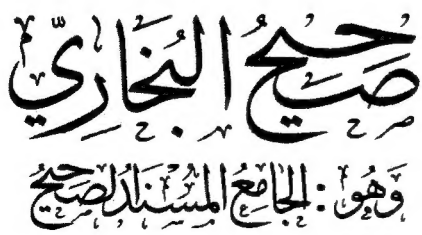 صَحِيحُ البُخَارِيِّ
وَهُوَ : الجَامِعُ المُسْنَدُ الصَحِيحُ